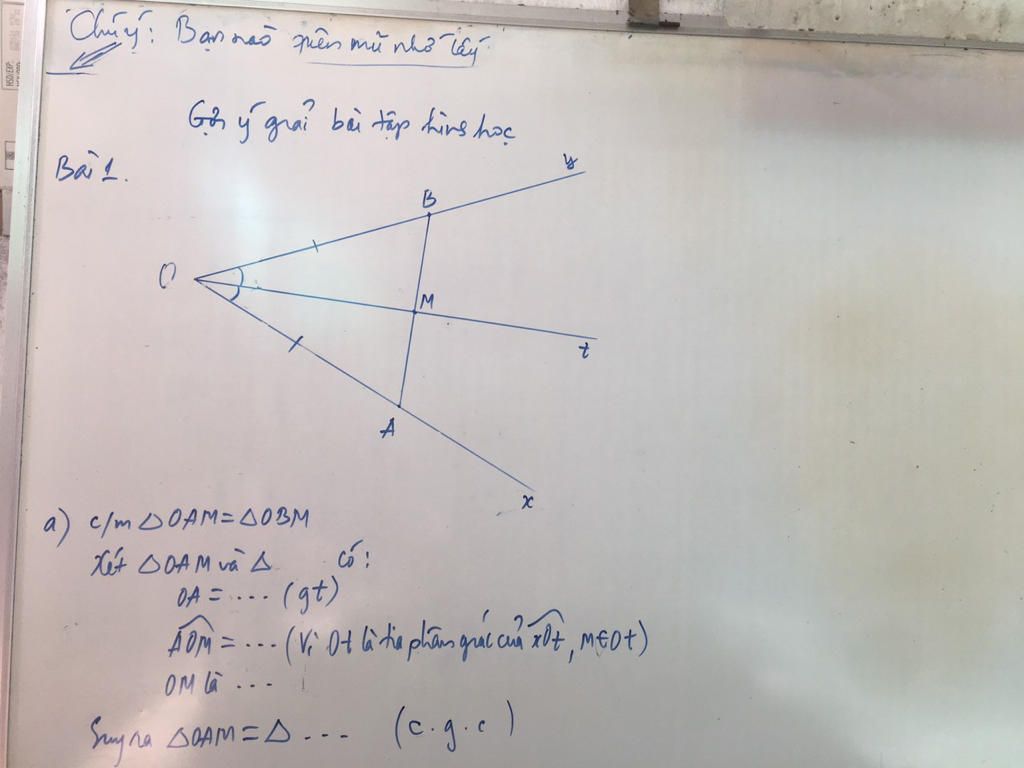 Chú ý: Bạn nào quên mũ nhớ lấy
Gợi ý giải bài tập hình học
Bài 1.
y
B
O
M
t
A
x
a) c/m △OAM = △OBM
Xét △OAM và △ có:
OA = ... (gt)
AOM = ... (Vì Ot là tia phân giác của xOt, M∈Ot)
OM là ...
Suy ra △OAM = △ ... (c.g.c)